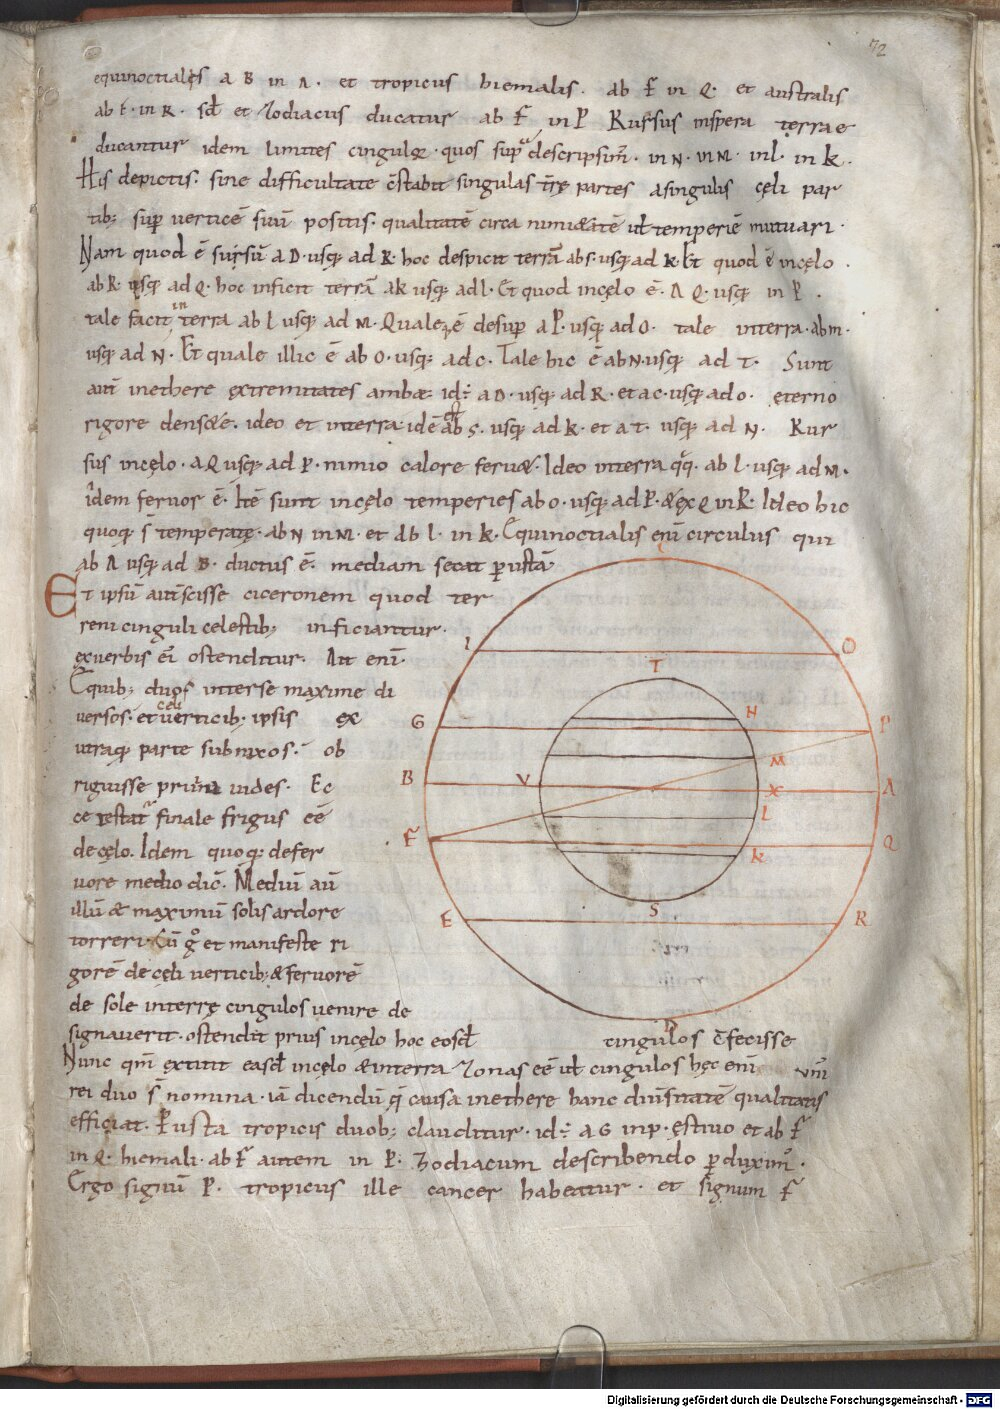 72
equinoctialęs a B in A. et tropicus hiemalis. ab F in Q. et australis
ab E. in R. sed et Zodiacus ducatur ab F in P Rursus inspera terrae
ducantur idem limites cingulorum quos supra descripsimus. in N. in M. in L. in K.
His depictis. sine difficultate constabit singulas terrę partes a singulis cęli par
tibus super verticē suū positis. qualitatē circa nimietatē ut temperiē mutuari.
Nam quod ē sursū a D. usque ad R. hoc despicit terrā ab S. usque ad K. Et quod ē incęlo.
ab R. usque ad Q. hoc inficit terrā a K usque ad L. Et quod incęlo ē. A Q. usque in P.
tale facit in terra ab L usque ad M. Quale ē desuper a P. usque ad O. tale in terra. ab M.
usque ad N. Et quale illic ē ab O. usque ad C. Tale hic ē ab N. usque ad T. Sunt
aut inethere extremitates ambae. id: a D. usque ad R. et a C. usque ad O. ęterno
rigore densate. ideo et interra idē ab S. usque ad K. et a T. usque ad N. Rur
sus incęlo. a Q usque ad P. nimio calore feruet. Ideo interra quoque. ab L. usque ad M.
idem feruor ē. Itē sunt incęlo temperies ab O. usque ad P. & ex Q in R. Ideo hic
quoque s temperatę. ab N in M. et ab L. in K. Ęquinoctialis enī circulus qui
ab A usque ad B. ductus ē. mediam secat perustā
Et ipsū aut scisse ciceronem quod ter
reni cinguli celestib; inficiantur.
ex uerbis ei ostenditur. Ait enī.
Ęquib; duos inter se maxime di
versos. et celi verticib; ipsis ex
utraque parte subnixos. ob
riguisse pruina uides. Ec
ce testatur finale frigus eē
de cęlo. Idem quoque de fer
uore medio dic. Mediū aū
illū & maximū solis ardore
torreri. Cū gº et manifeste ri
gorē de cęli verticib; & feruorē
de sole interrę cingulos venire de
signaverit. ostendit prius incęlo hoc eosd cingulos cfecisse
Nunc qm extitit easd incęlo & interra Zonas eē ut cingulos hęc enī unī
rei duo s nomina. iā dicendū que causa inethere hanc diuersitatē qualitatis
efficiat. Pusta tropicis duob; clauditur. id: a G in P. ęstivo et ab F
in Q. hiemali. ab F autem in P. Zodiacum describendo perduxim.
Ergo signū P. tropicus ille cancer habeatur. et signum F
I
O
T
N
G
P
M
B
V
X
A
L
F
Q
K
S
E
R
D
Digitalisierung gefördert durch die Deutsche Forschungsgemeinschaft - DFG